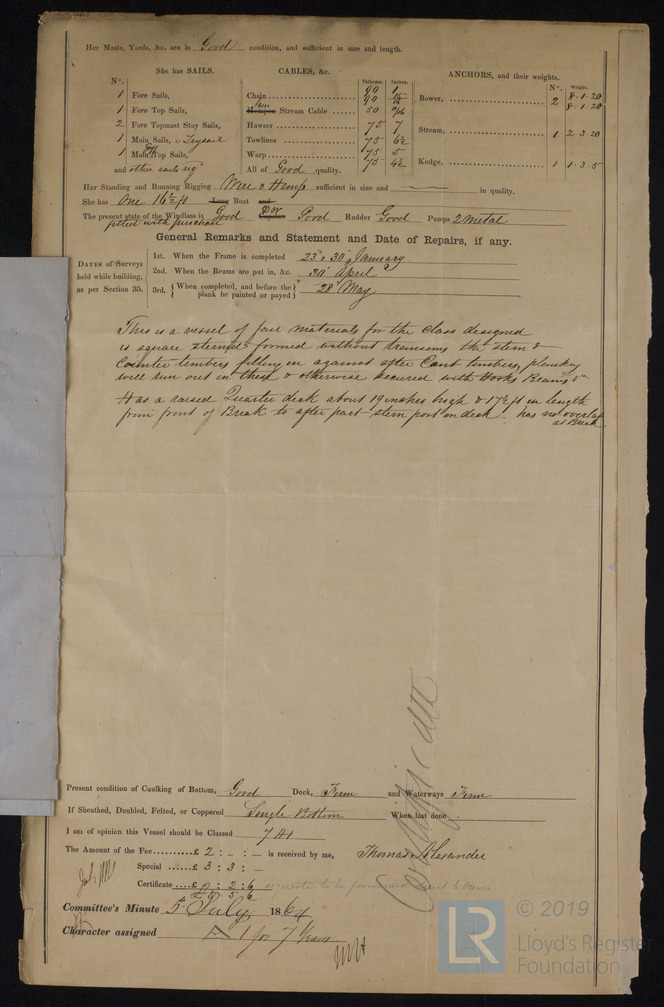 Her Masts, Yards, &c. are in Good condition, and sufficient in size and length.
She has SAILS.
CABLES, &c.
ANCHORS, and their weights.
N°.
Fathoms. Inches.
N°. Weight.
1 Fore Sails,
1 Fore Top Sails,
2 Fore Topmast Stay Sails,
1 Main Sails, & Trysail
1 Main Top Sails,
and other sails
Chain 90 1
90
Hempen Stream Cable 50
Hawser 75 7
Towlines 75 6½
Warp 75 5
75 4½
All of Good quality.
Bower, 2 8.1.20
8.1.20
Stream, 1 2.3.20
Kedge, 1 1.3.5
Her Standing and Running Rigging Wire & Hemp sufficient in size and in quality.
She has One 16½ ft Long Boat and
The present state of the Windlass is Good Capstan Good Rudder Good Pumps 2 Metal
fitted with purchase
General Remarks and Statement and Date of Repairs, if any.
DATES of Surveys held while building, as per Section 35.
1st. When the Frame is completed 23 & 30 January
2nd. When the Beams are put in, &c. 30 April
3rd, { When completed, and before the plank be painted or payed } 28 May
This is a vessel of fair materials for the Class designed
is square sterned formed without transoms the stern &
Counter timbers filling in against after Cant timbers, planking
well run out in these & otherwise secured with Hooks Beams &c
Has a raised Quarter deck about 19 inches high & 17½ ft in length
from front of Break to after part stern post on deck has no overlap
at Break
Certificate
Present condition of Caulking of Bottom, Good Deck, Firm and Waterways Firm
If Sheathed, Doubled, Felted, or Coppered Single Bottom When last done
I am of opinion this Vessel should be Classed 7 A1
The Amount of the Fee £ 2 : - : - is received by me, Thomas Alexander
Special £ 3 : 3 : -
Certificate £ : 2 : 6
£ 5 : 5 : 6
Committee's Minute 5 July 1864
Character assigned A 1 for 7 Years
© 2019
LR
Lloyd's Register
Foundation